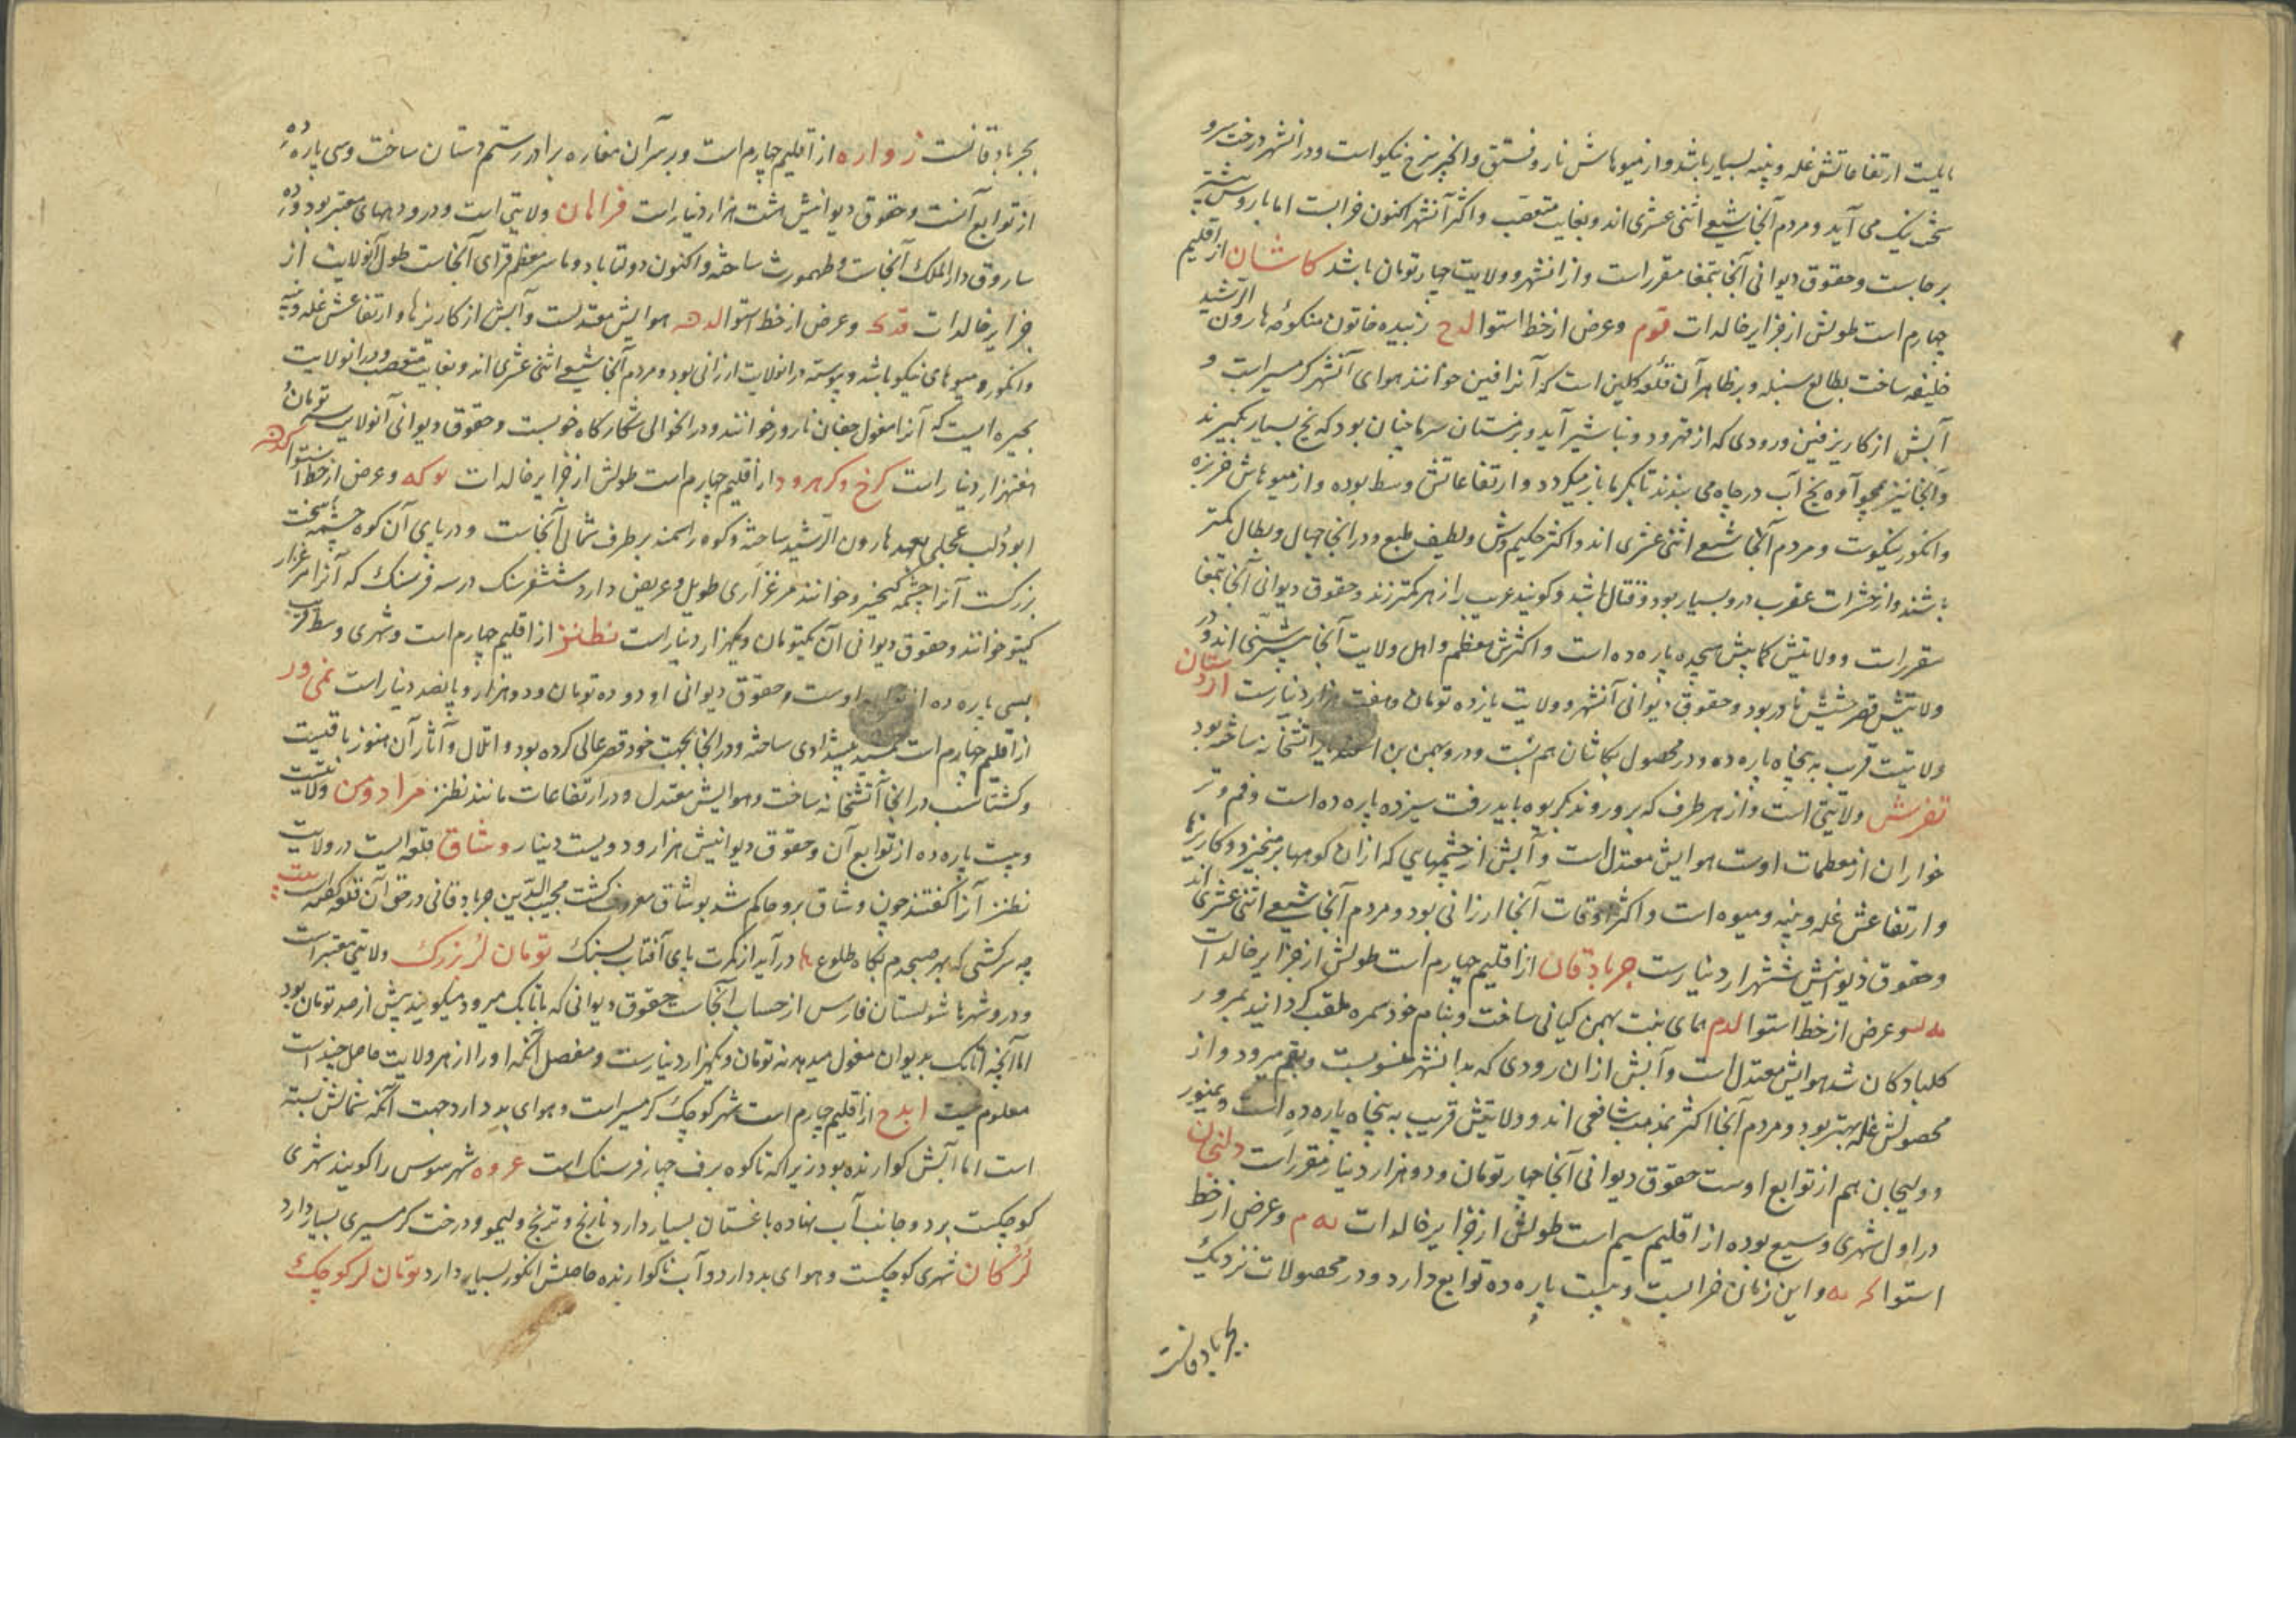 مایلست ارتفاعاتش غله و پنبه بسیار باشد و از میوهاش نار و فستق و انجیر سرخ نیکو است و در انشهر درخت سرو
سخت نیک می آید و مردم آنجا شیعی اثنی عشری اند و بغایت متعصب و اکثر آنشهر اکنون خرابست اما باروش بیشتر
بر جاست و حقوق دیوانی آنجا بتمغا مقرر است و از انشهر و ولایت چهار تومان باشد کاشان از اقلیم
چهارم است طولش از جزایر خالدات قوم و عرض از خط استوا لدح زبیده خاتون منکوحه هارون الرشید
خلیفه ساخت بطالع سنبله و بر ظاهر آن قلعه کلین است که آنرا فین خوانند هوای آنشهر کرمسیر است و
آبش از کاریز فین و رودی که از قهرود و نیاشیر آید و بزمستان سرما چنان بود که یخ بسیار بکیرند
و آنجا نیز همچو آوه یخ آب در چاه می بندند تا بکرما باز میکردد و ارتفاعاتش وسط بوده و از میوهاش خربزه
و انکور نیکوست و مردم آنجا شیعی اثنی عشری اند و اکثر حکیم وش و لطیف طبع و در انجا جهال و بطال کمتر
باشند و از حشرات عقرب در و بسیار بود و قتال باشد و کویند غریب را زهر کمتر زند و حقوق دیوانی آنجا بتمغا
مقرر است و ولایتش کمابیش هیجده پاره ده است و اکثرش معظم و اهل ولایت آنجا بیشتر سنی اند و در
ولایتش قصر حشیش نادر بود و حقوق دیوانی آنشهر و ولایت یازده تومان و هفت هزار دینارست اردستان
ولایتیست قریب به پنجاه پاره ده و در محصول بکاشان هم نسبت و در و بهمن بن اسفندیار آتشخانه ساخته بود
تفرش ولایتی است و از هر طرف که برو روند بکریوه باید رفت سیزده پاره ده است و فم و تر
خواران از معظمات اوست هوایش معتدل است و آبش از چشمهایی که از ان کوهها بر میخیزد و کاریزها
و ارتفاعش غله و پنبه و میوه است و اکثر اوقات آنجا ارزانی بود و مردم آنجا شیعی اثنی عشری اند
و حقوق دیوانیش ششهزار دینارست جربادقان از اقلیم چهارم است طولش از جزایر خالدات
مه لو و عرض از خط استوا لدم همای بنت بهمن کیانی ساخت و بنام خود سمره ملقب کردانید بمرور
کلبادکان شد هوایش معتدل است و آبش از ان رودی که بدانشهر منسوبست و بقم میرود و از
محصولش غله بهتر بود و مردم آنجا اکثر بمذهب شافعی اند و ولایتش قریب به پنجاه پاره ده است و نیمور
و ولیجان هم از توابع اوست حقوق دیوانی آنجا چهار تومان و دو هزار دینار مقرر است دلنجان
در اول شهری وسیع بوده از اقلیم سیم است طولش از جزایر خالدات مه م و عرض از خط
استوا و این زمان خرابست و بیست پاره ده توابع دارد و در محصولات نزدیک
بجربادقانست
بجربادقانست زواره از اقلیم چهارم است و بر سر آن مغاره برادر رستم دستان ساخت و سی پاره ده
از توابع آنست و حقوق دیوانیش هشت هزار دینار است فراهان ولایتی است و در و دیههای معتبر بود و ده
ساروق دار الملک آنجاست و طهمورث ساخته و اکنون دولتاباد و ماستر معظم قرای آنجاست طول آنولایت از
جزایر خالدات قدک و عرض از خط استوا لده هوایش معتدلست و آبش از کاریزها و ارتفاعش غله و پنبه
و انکور و میوهای نیکو باشد و پیوسته در انولایت ارزانی بود و مردم آنجا شیعی اثنی عشری اند و بغایت متعصب و در انولایت
بحیره ایست که آنرا مغول جغان ناوور خوانند و در انحوالی شکارکاه خوبست و حقوق دیوانی آنولایت سه تومان و
هفتهزار دینار است کرخ و کرهرود از اقلیم چهارم است طولش از جزایر خالدات و عرض از خط استوا لده
ابودلف عجلی بعهد هارون الرشید ساخته و کوه راسمند بر طرف شمالی آنجاست و در پای آن کوه چشمه سخت
بزرکست آنرا چشمه کیخسرو خوانند مرغزاری طویل و عریض دارد ششفرسنک در سه فرسنک که آنرا مرغزار
کیتو خوانند و حقوق دیوانی آن یکتومان و یکهزار دینار است نطنز از اقلیم چهارم است و شهری وسط قریب
بسی پاره ده از اوست و حقوق دیوانی او دو ده تومان و دو هزار و پانصد دینار است نمی ور
از اقلیم چهارم است جمشید پیشدادی ساخته و در انجا بجهت خود قصر عالی کرده بود و اتلال و آثار آن هنوز باقیست
و کشتاسف در انجا آتشخانه ساخت و هوایش معتدل و در ارتفاعات مانند نطنز مرادومن ولایتیست
و بیست پاره ده از توابع آن و حقوق دیوانیش هزار و دویست دینار وشاق قلعه ایست در ولایت
نطنز آنرا کفتند چون وشاق برو حاکم شد بوشاق معروف کشت مجیب الدین جربادقانی در حق آن قلعه کفته است بیت
چه سرکشی که بهر صبحدم بکاه طلوع ها در آید از کمرت پای آفتاب بسنک تومان لر بزرک ولایتی معتبر است
و در و شهرها شولستان فارس از حساب آنجاست حقوق دیوانی که باتابک میرود میکویند بیش از صد تومان بود
اما آنچه اتابک بدیوان مغول میدهد نه تومان و یکهزار دینارست و مفصل آنکه او را از هر ولایت حاصل چیند است
معلوم نیست ایدج از اقلیم چهارم است شهر کوچک کرمسیر است و هوای بد دارد جهت آنکه شمالش بسته
است اما آبش کوارنده بود زیرا که تا کوه برف چهار فرسنک است عروه شهر سوس را کویند شهری
کوچکست بر دو جانب آب نهاده باغستان بسیار دارد نارنج و ترنج و لیمو و درخت کرمسیری بسیار دارد
لرکان شهری کوچکست و هوای بد دارد و آب ناکوارنده حاصلش انکور بسیار دارد تومان لر کوچک